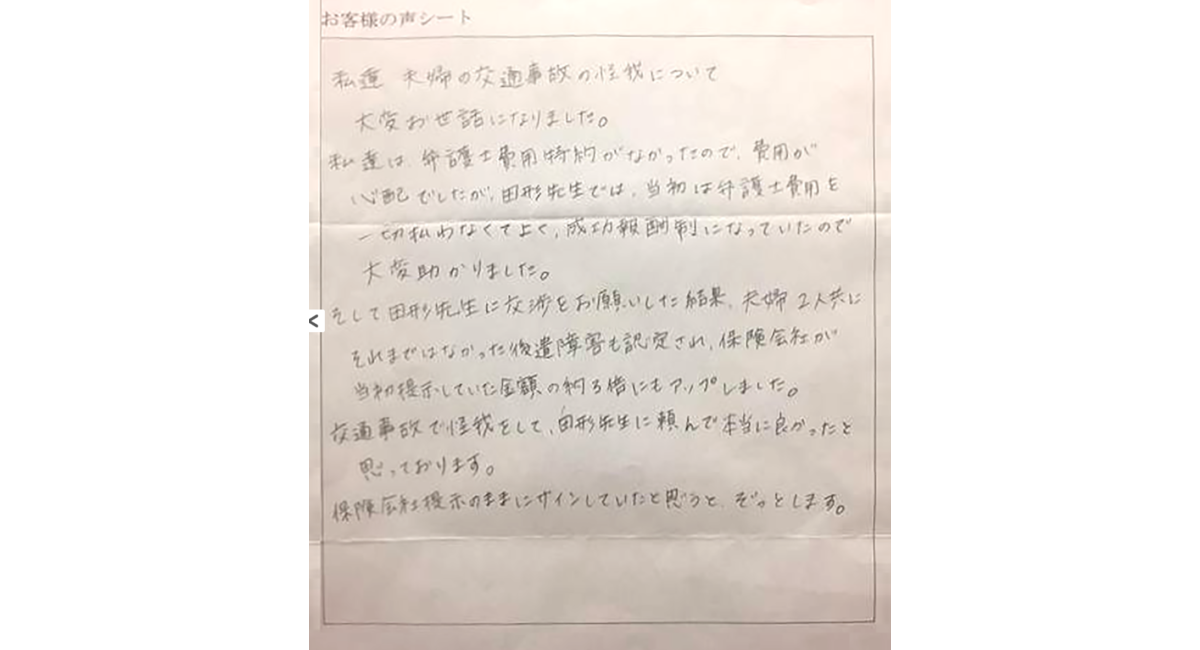 お客様の声シート
私達 夫婦の交通事故の怪我について
大変お世話になりました。
私達は、弁護士費用特約がなかったので、費用が
心配でしたが、田形先生では、当初は弁護士費用を
一切払わなくてよく、成功報酬制になっていたので
大変助かりました。
そして田形先生に交渉をお願いした結果、夫婦2人共に
それまではなかった後遺障害も認定され、保険会社が
当初提示していた金額の約3倍にもアップしました。
交通事故で怪我をして、田形先生に頼んで本当に良かったと
思っております。
保険会社提示のままにサインしていたと思うと、ぞっとします。